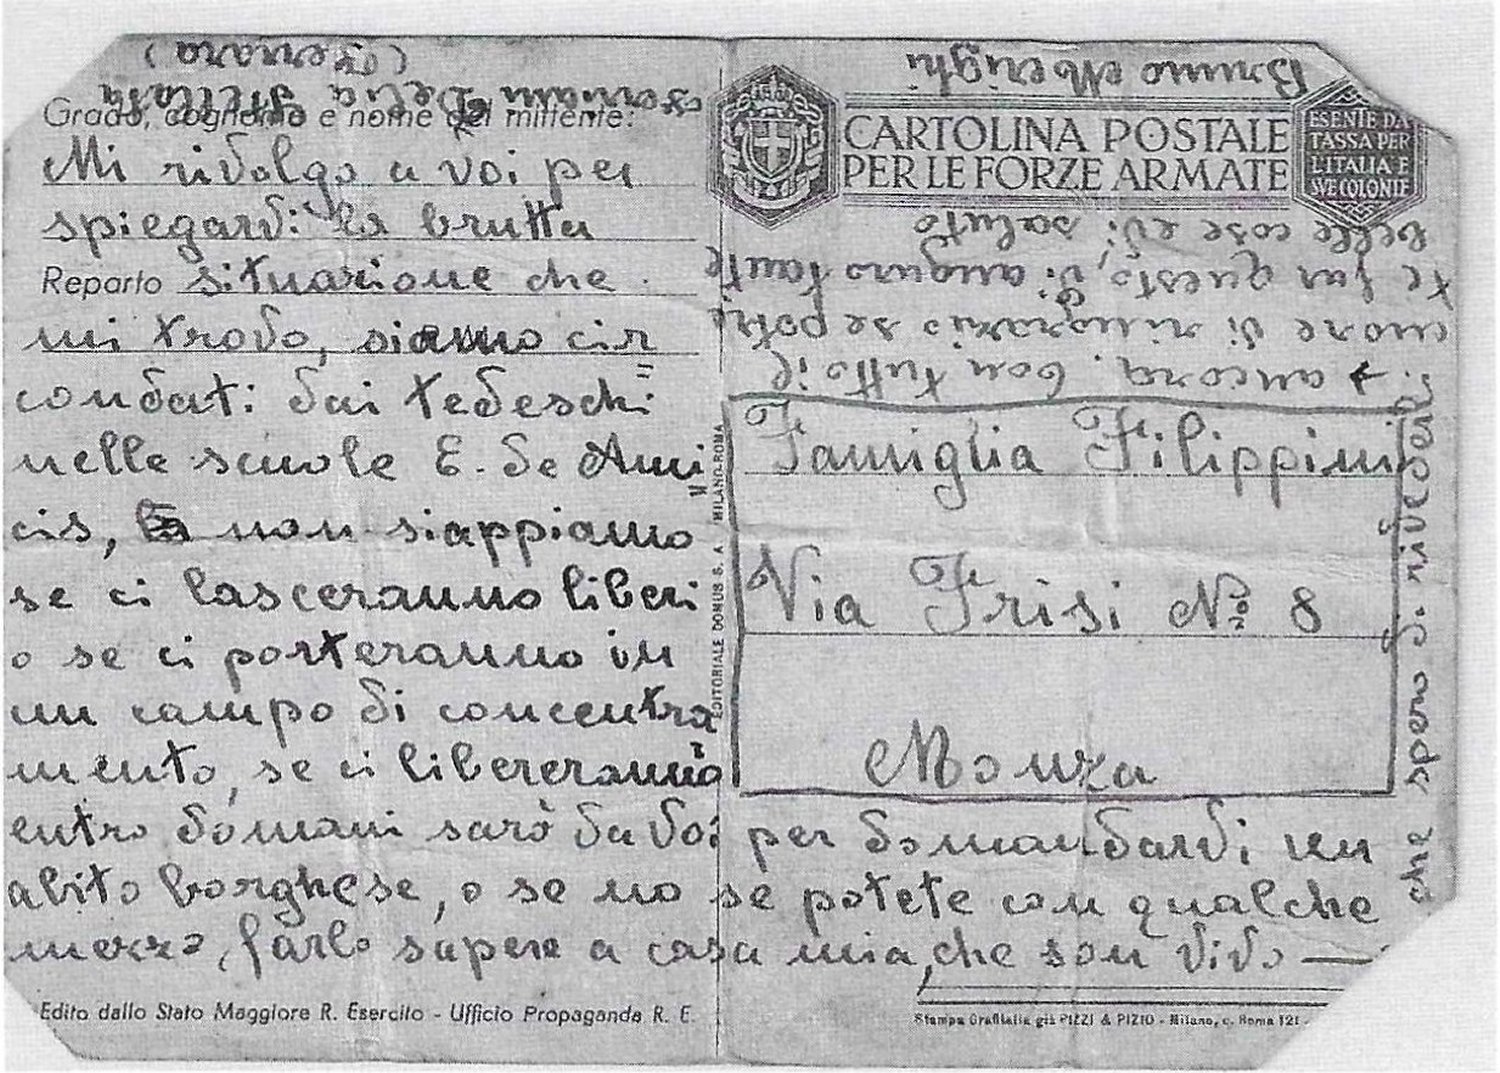 Grado, cognome e nome del mittente:
Mi rivolgo a voi per
spiegarvi la brutta
Reparto situazione che
mi trovo, siamo cir
condati dai tedeschi
nelle scuole E. De Ami
cis, non siappiamo
se ci lasceranno liberi
o se ci porteranno in
un campo di concentra
mento, se ci libereranno
entro domani sarò da voi per domandarvi un
abito borghese, o se no se potete con qualche
mezzo, farlo sapere a casa mia, che son vivo —
che spero di rivedere
→ ancora. Con tutto il
cuore vi ringrazio se potre
te far questo, vi auguro tante
belle cose e vi saluto
Bruno Merighi
Ferriani Delia Stellata
(Ferrara)
CARTOLINA POSTALE
PER LE FORZE ARMATE
ESENTE DA
TASSA PER
L'ITALIA E
SVE COLONIE
Famiglia Filippini
Via Frisi No. 8
Monza
EDITORIALE DOMUS S. A. MILANO-ROMA
Edito dallo Stato Maggiore R. Esercito - Ufficio Propaganda R. E.
Stampa Grafitalia già PIZZI & PIZIO - Milano, c. Roma 121